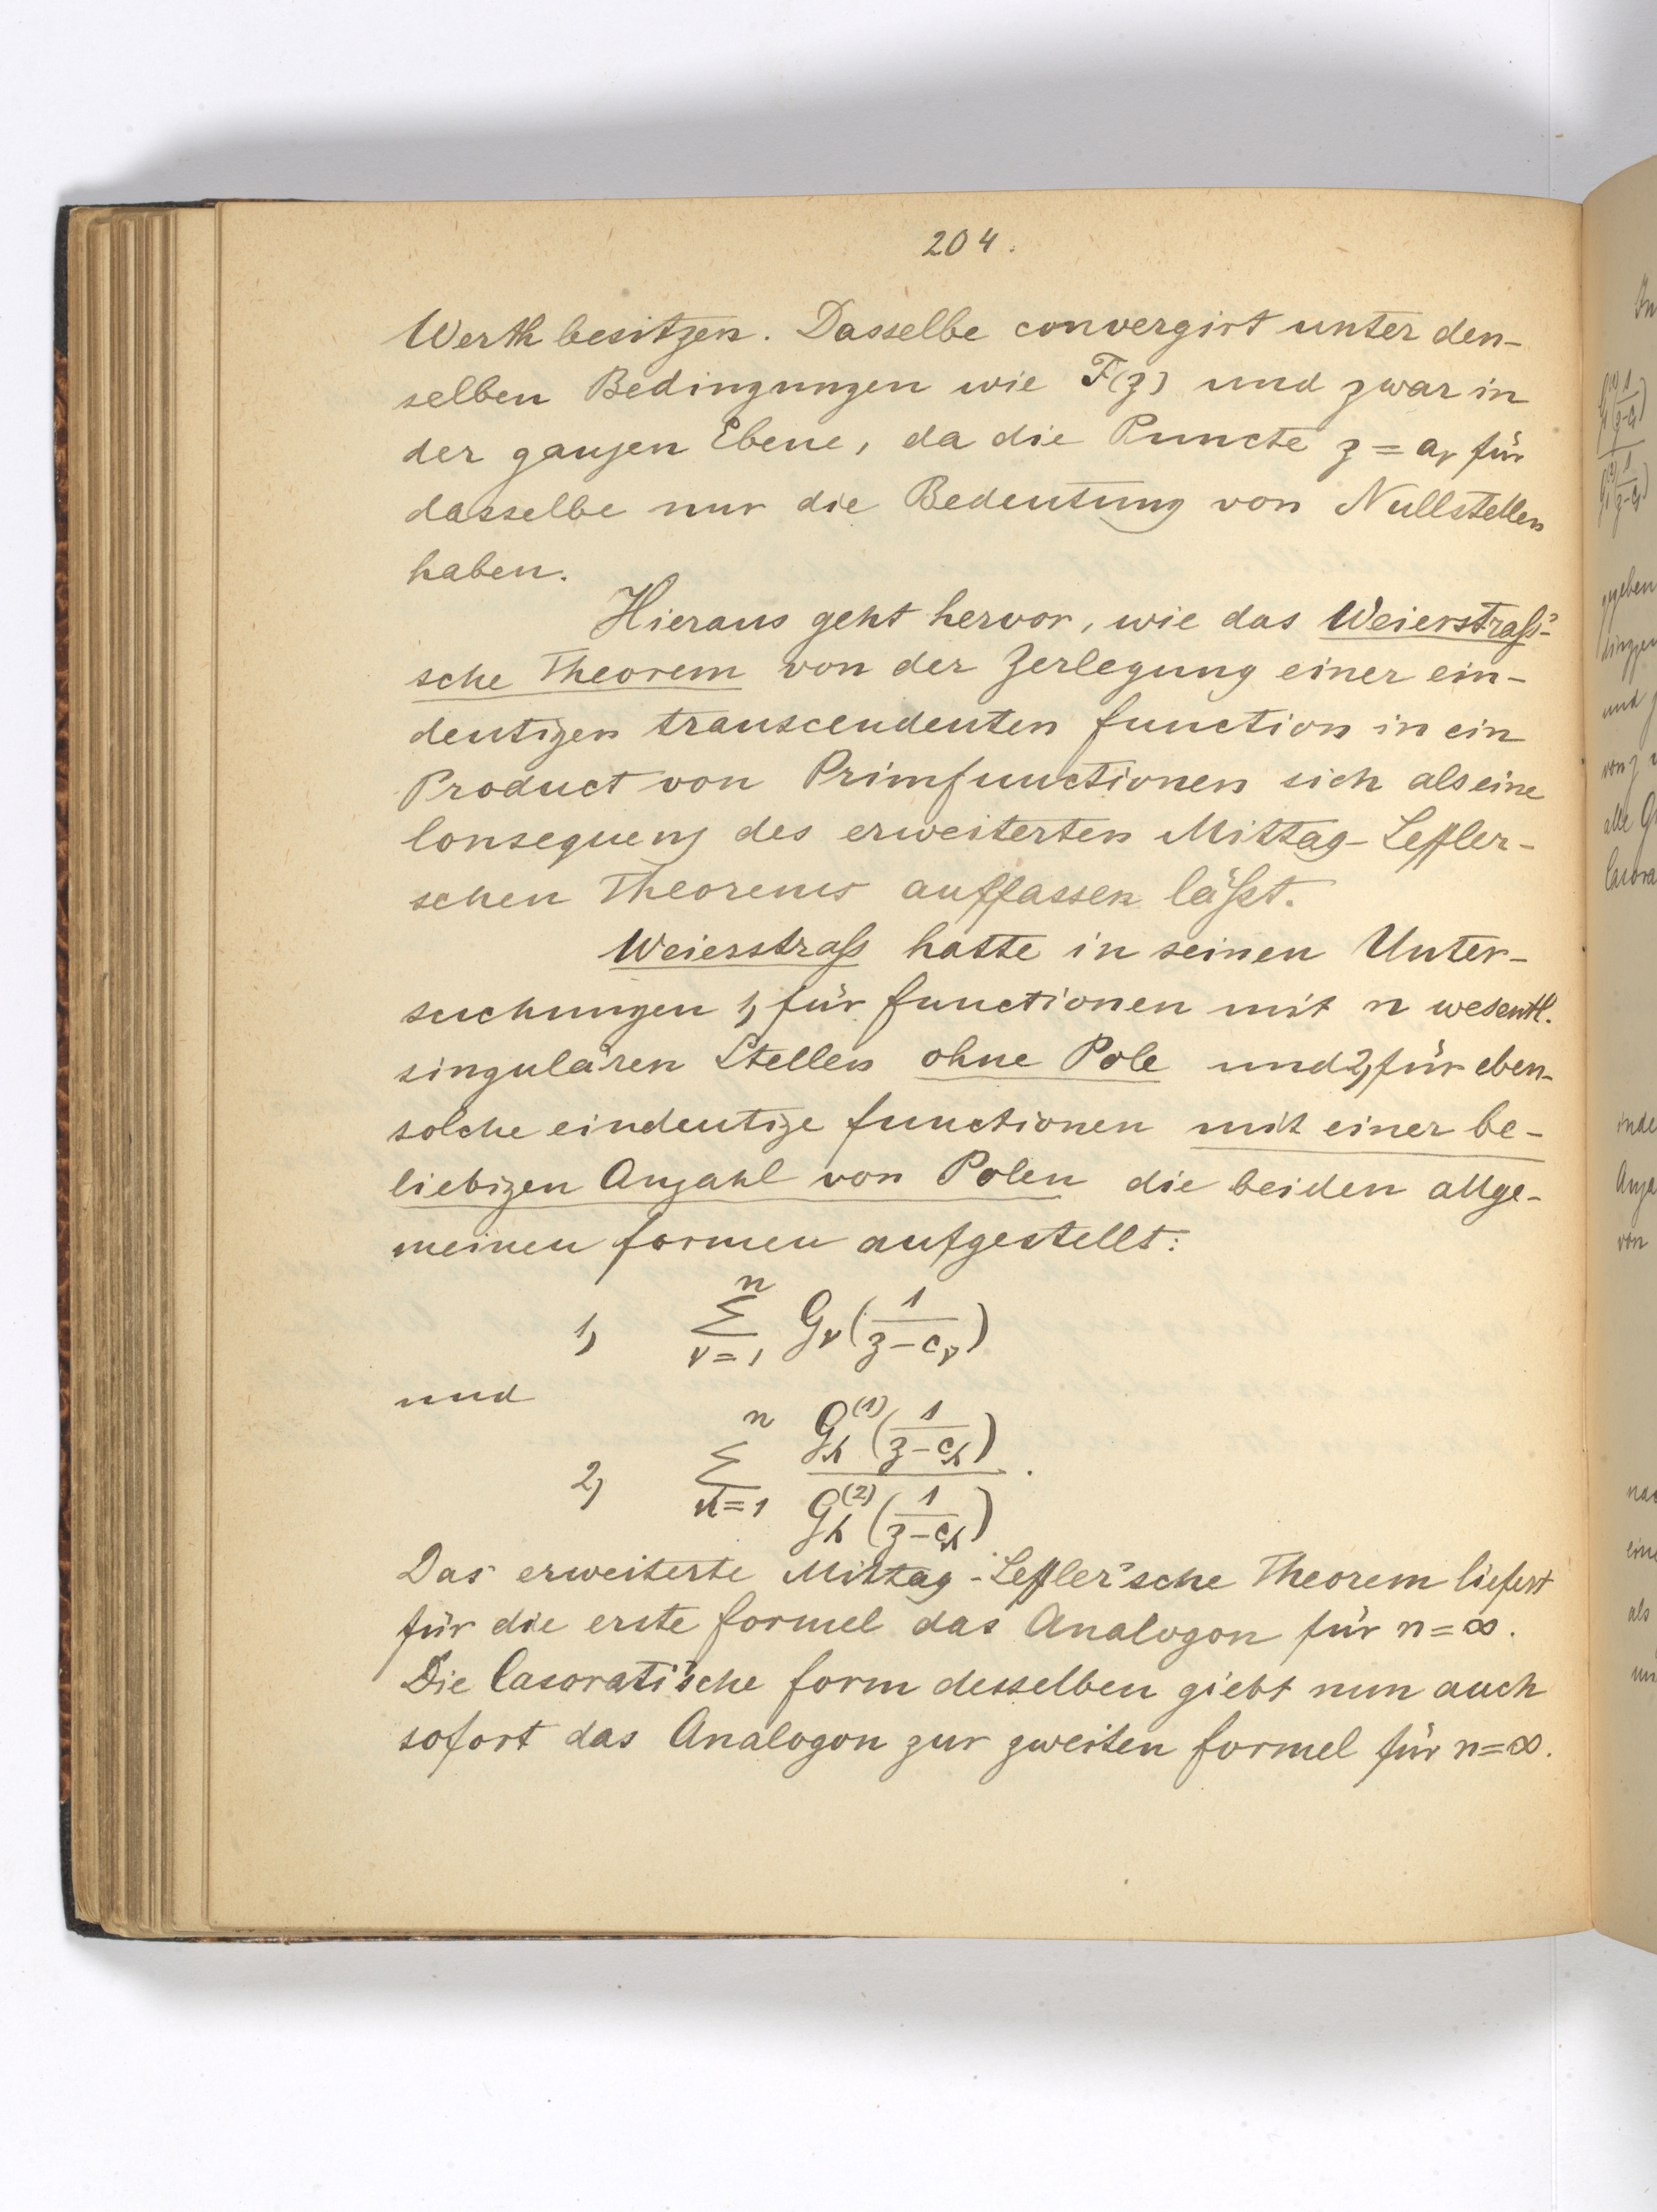 204.
Werth besitzen. Dasselbe convergirt unter den-
selben Bedingungen wie F(z) und zwar in
der ganzen Ebene, da die Puncte z = aν für
dasselbe nur die Bedeutung von Nullstellen
haben.
Hieraus geht hervor, wie das Weierstraß'-
sche Theorem von der Zerlegung einer ein-
deutigen transcendenten Function in ein
Product von Primfunctionen sich als eine
Consequenz des erweiterten Mittag-Leffler-
schen Theorems auffassen läßt.
Weierstraß hatte in seinen Unter-
suchungen 1, für Functionen mit n wesentl.
singulären Stellen ohne Pole und 2, für eben-
solche eindeutige Functionen mit einer be-
liebigen Anzahl von Polen die beiden allge-
meinen Formen aufgestellt:
1, \sum_{ν=1}^{n} G_ν(\frac{1}{z-c_ν})
und
2, \sum_{h=1}^{n} \frac{G_h^{(1)}(\frac{1}{z-c_h})}{G_h^{(2)}(\frac{1}{z-c_h})}.
Das erweiterte Mittag-Leffler'sche Theorem liefert
für die erste Formel das Analogon für n=∞.
Die Casorati'sche Form desselben giebt nun auch
sofort das Analogon zur zweiten Formel für n=∞.